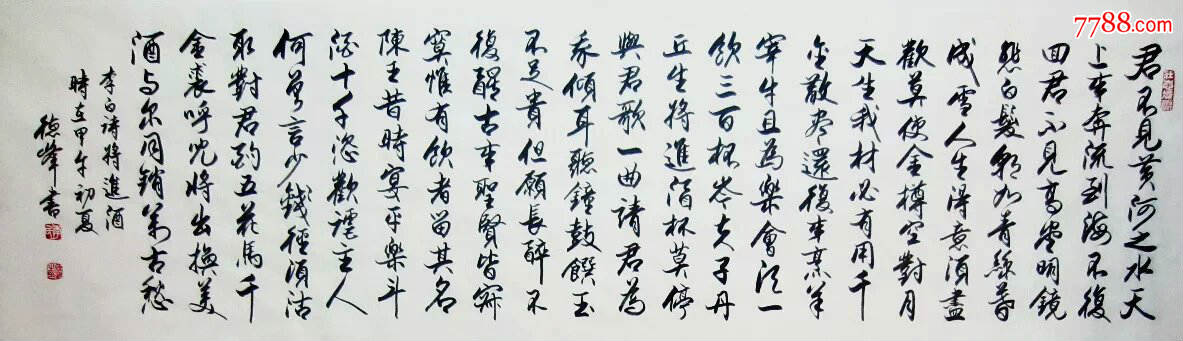 7788.com
君不見黃河之水天
上來奔流到海不復
回君不見高堂明鏡
悲白髮朝如青絲暮
成雪人生得意須盡
歡莫使金樽空對月
天生我材必有用千
金散盡還復來烹羊
宰牛且為樂會須一
飲三百杯岑夫子丹
丘生將進酒杯莫停
與君歌一曲請君為
我傾耳聽鐘鼓饌玉
不足貴但願長醉不
復醒古來聖賢皆寂
寞惟有飲者留其名
陳王昔時宴平樂斗
酒十千恣歡謔主人
何為言少錢徑須沽
取對君酌五花馬千
金裘呼兒將出換美
酒与尔同銷萬古愁
李白詩將進酒
時在甲午初夏
德峰書